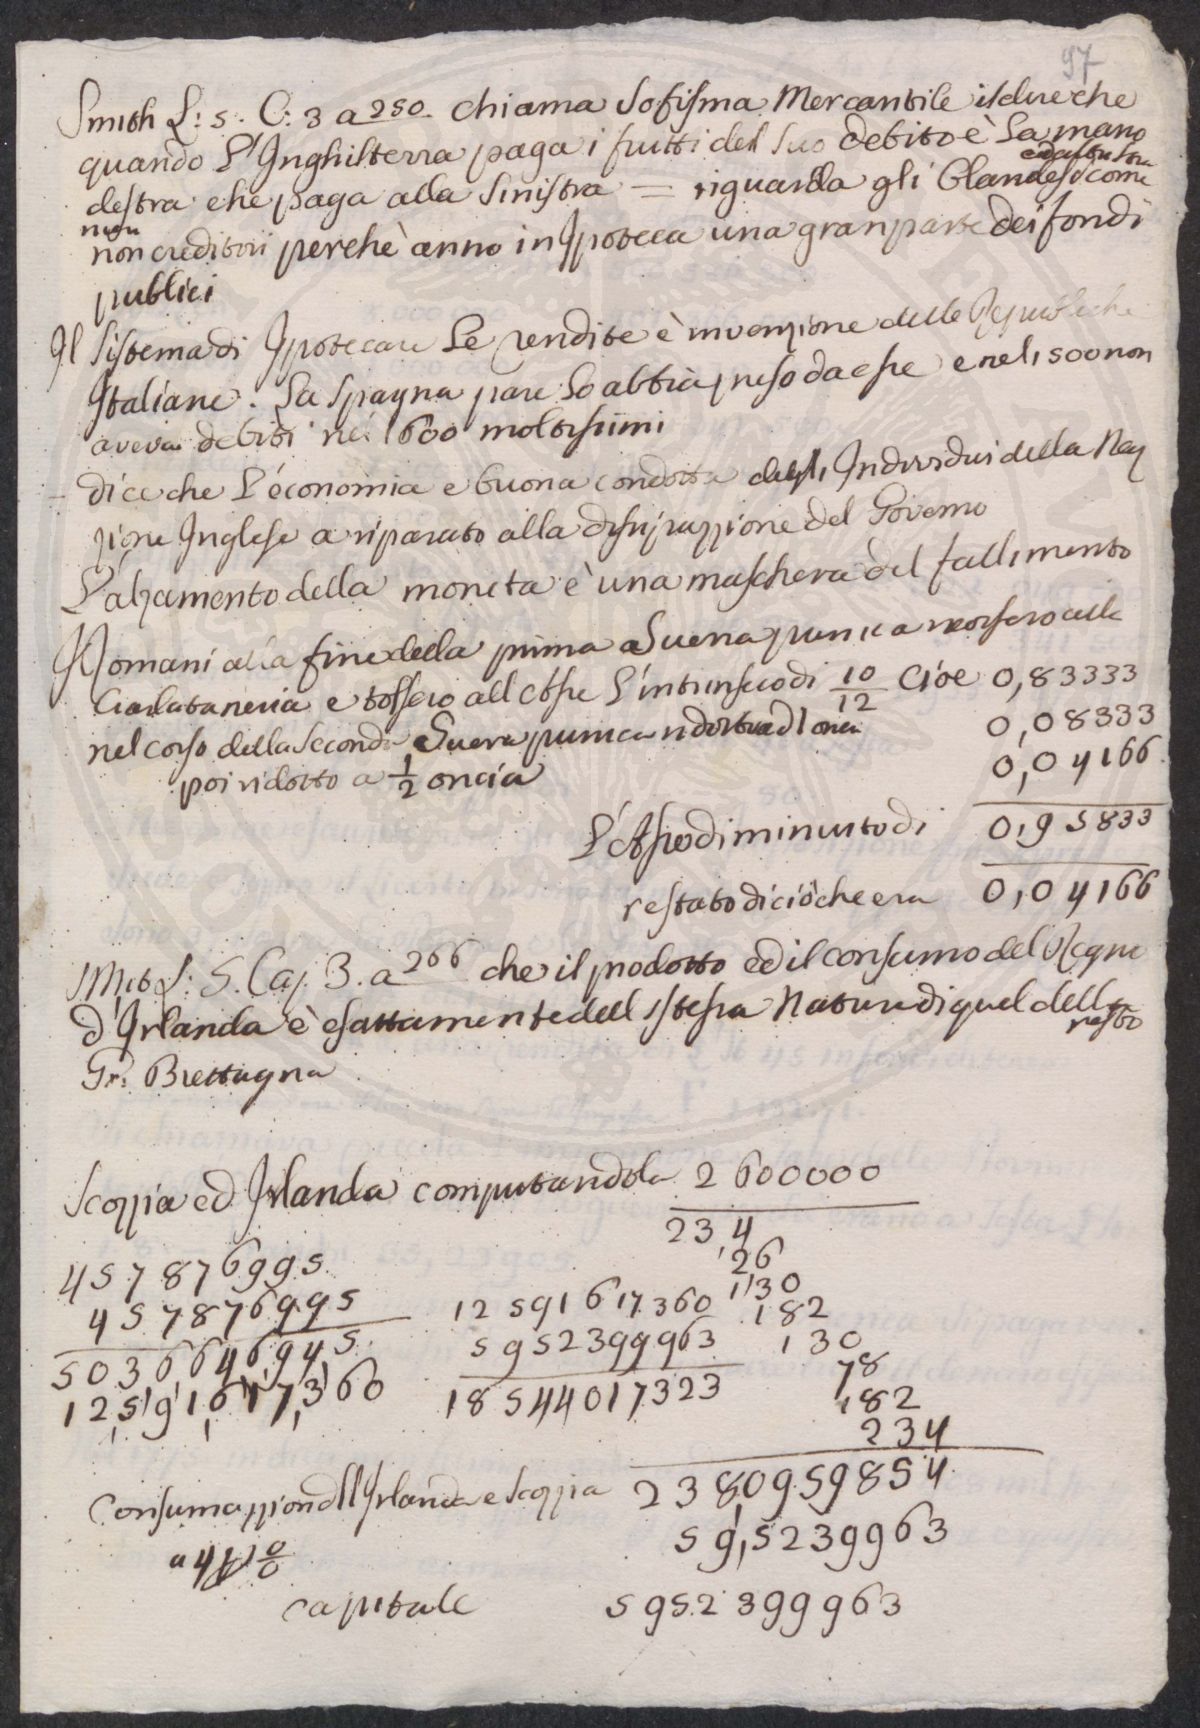 97
Smith L: 5. C: 3 a 250. chiama Sofisma Mercantile il dire che
quando l'Inghilterra paga i frutti del suo debito è la mano
destra che paga alla sinistra = riguarda gli Olandesi come
non creditori perchè anno in Ipoteca una gran parte dei fondi
publici
Il sistema di Ipotecare le rendite è invenzione delle Republiche
Italiane. La Spagna pare lo abbia preso da esse e nel 1500 non
aveva debiti nel 1600 moltissimi
- dice che l'économia e buona condotta degli Individui della Na
zione Inglese a riparato alla dissipazzione del Governo
L'alzamento della moneta è una maschera del fallimento
Romani alla fine della prima Guerra punica ricorsero alla
Ciarlataneria e tolsero all'Asse l'intrinseco di 10/12 Cioe 0,83333
nel corso della seconda Guerra punica ridotto ad 1 oncia 0,08333
poi ridotto a 1/2 oncia 0,04166
L'Asse diminuito di 0,95833
restato di ciò che era 0,04166
Smit L: 5. Cap. 3. a 266 che il prodotto ed il consumo del Regno
d'Irlanda è esattamente dell'istessa Natura di quel del
resto
Gr: Brettagna
Scozzia ed Irlanda computandola 2600000
23,4
26
1130
182
130
78
182
234
457876995
457876995
5036646945
12591617360
12591617360
5952399963
18544017323
Consumazzion dell'Irlanda e Scozzia 2380959854
59,5239963
capitale 5952399963